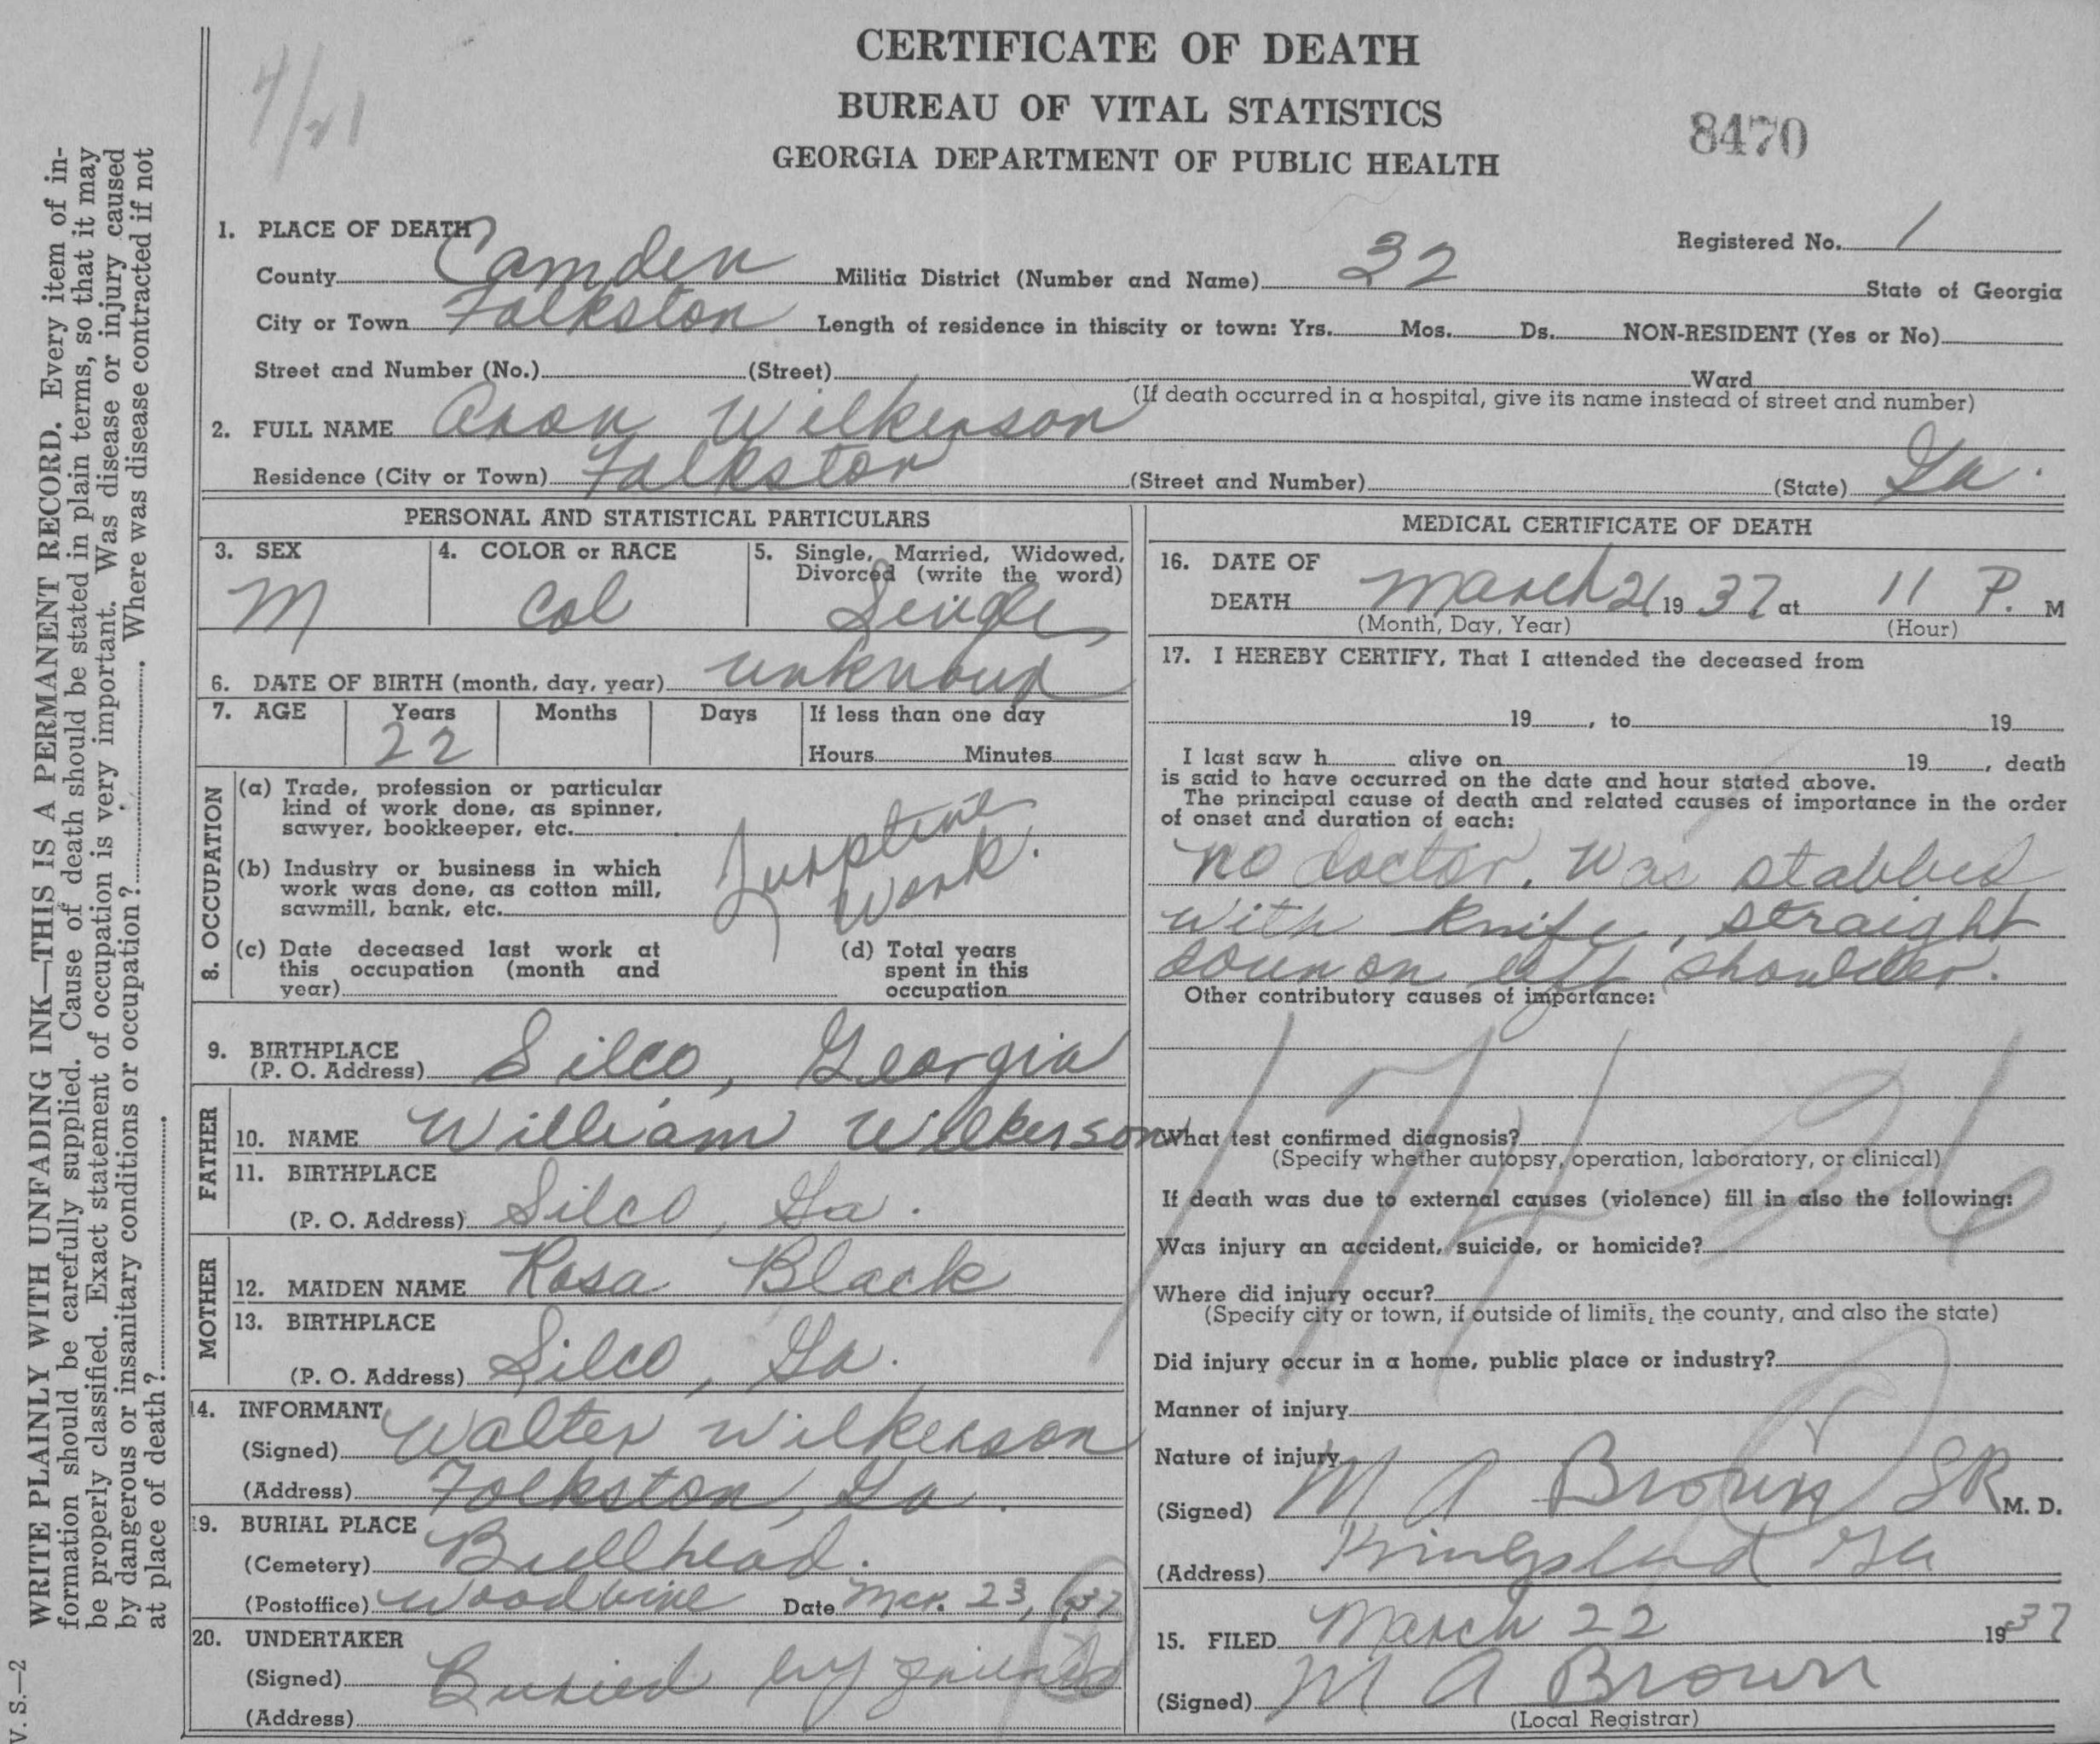 CERTIFICATE OF DEATH
BUREAU OF VITAL STATISTICS
GEORGIA DEPARTMENT OF PUBLIC HEALTH
8470
4/21
1. PLACE OF DEATH
Registered No. 1
County Camden Militia District (Number and Name) 32 State of Georgia
City or Town Folkston Length of residence in thiscity or town: Yrs. Mos. Ds. NON-RESIDENT (Yes or No)
Street and Number (No.) (Street) Ward
(If death occurred in a hospital, give its name instead of street and number)
2. FULL NAME Aron Wilkerson
Residence (City or Town) Folkston (Street and Number) (State) Ga.
PERSONAL AND STATISTICAL PARTICULARS
3. SEX M
4. COLOR or RACE Col
5. Single, Married, Widowed,
Divorced (write the word)
Single
6. DATE OF BIRTH (month, day, year) unknown
7. AGE Years Months Days If less than one day
22 Hours Minutes
8. OCCUPATION
(a) Trade, profession or particular
kind of work done, as spinner,
sawyer, bookkeeper, etc.
Turptine
(b) Industry or business in which
work was done, as cotton mill,
sawmill, bank, etc.
Work.
(c) Date deceased last work at
this occupation (month and
year)
(d) Total years
spent in this
occupation
9. BIRTHPLACE
(P. O. Address) Silco, Georgia
FATHER
10. NAME William Wilkerson
11. BIRTHPLACE
(P. O. Address) Silco, Ga.
MOTHER
12. MAIDEN NAME Rosa Black
13. BIRTHPLACE
(P. O. Address) Silco, Ga.
14. INFORMANT
(Signed) Walter Wilkerson
(Address) Folkston, Ga.
19. BURIAL PLACE
(Cemetery) Bullhead.
(Postoffice) Woodbine Date Mar. 23, 1937
20. UNDERTAKER
(Signed) Buried by friends
(Address)
MEDICAL CERTIFICATE OF DEATH
16. DATE OF
DEATH March 21 1937 at 11 P. M
(Month, Day, Year) (Hour)
17. I HEREBY CERTIFY, That I attended the deceased from
19 , to 19
I last saw h alive on 19 , death
is said to have occurred on the date and hour stated above.
The principal cause of death and related causes of importance in the order
of onset and duration of each:
no doctor. Was stabbed
with knife, straight
down on left shoulder.
Other contributory causes of importance:
What test confirmed diagnosis?
(Specify whether autopsy, operation, laboratory, or clinical)
If death was due to external causes (violence) fill in also the following:
Was injury an accident, suicide, or homicide?
Where did injury occur?
(Specify city or town, if outside of limits, the county, and also the state)
Did injury occur in a home, public place or industry?
Manner of injury
Nature of injury
(Signed) M A Brown SR M. D.
(Address) Kingsland Ga
15. FILED March 22 1937
(Signed) M A Brown
(Local Registrar)
WRITE PLAINLY WITH UNFADING INK—THIS IS A PERMANENT RECORD. Every item of in-
formation should be carefully supplied. Cause of death should be stated in plain terms, so that it may
be properly classified. Exact statement of occupation is very important. Was disease or injury caused
by dangerous or insanitary conditions or occupation? Where was disease contracted if not
at place of death?
V. S.—2